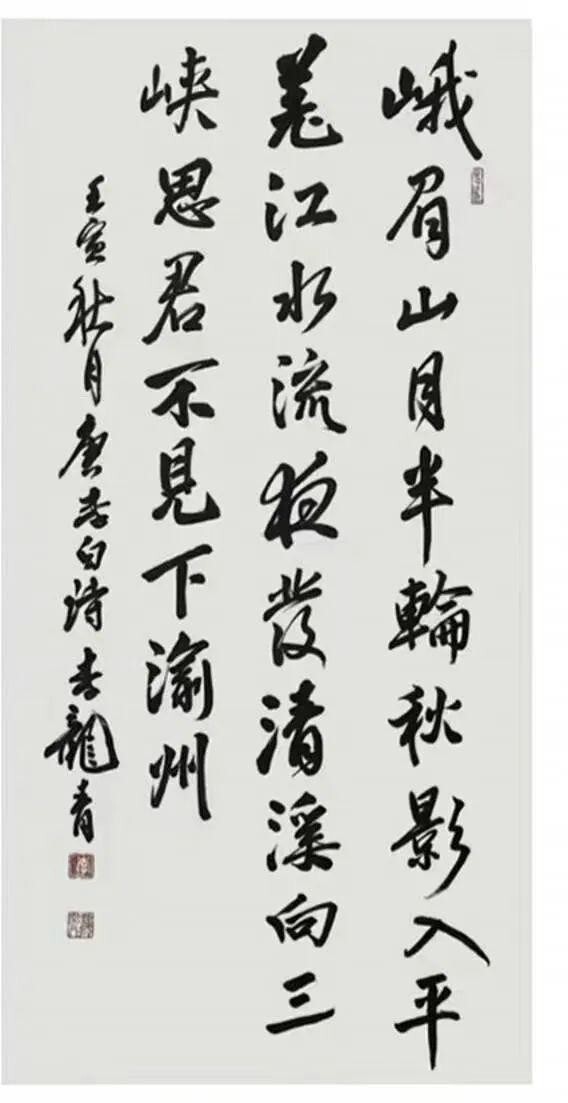 峨眉山月半輪秋影入平
羌江水流夜發清溪向三
峡思君不見下渝州
壬寅秋月唐李白詩李龍青